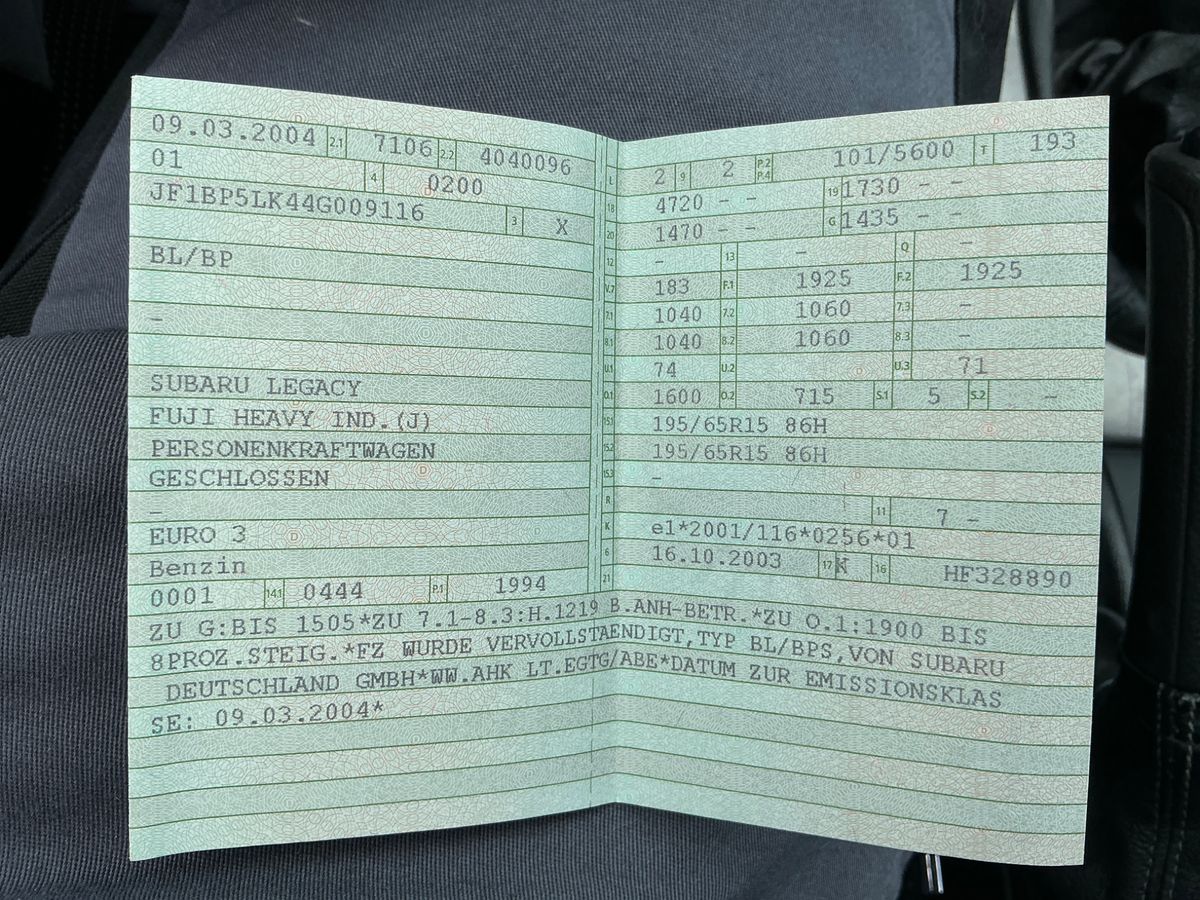 09.03.2004 2.1 7106 2.2 4040096
01 4 0200
JF1BP5LK44G009116 3 X
BL/BP
–
SUBARU LEGACY
FUJI HEAVY IND.(J)
PERSONENKRAFTWAGEN
GESCHLOSSEN
–
EURO 3
Benzin
0001 14.1 0444 P.1 1994
L 2 9 2 P.2 P.4 101/5600 T 193
18 4720 – – 19 1730 – –
20 1470 – – G 1435 – –
12 – 13 – Q –
V.7 183 F.1 1925 F.2 1925
7.1 1040 7.2 1060 7.3 –
8.1 1040 8.2 1060 8.3 –
U.1 74 U.2 U.3 71
O.1 1600 O.2 715 S.1 5 S.2 –
15.1 195/65R15 86H
15.2 195/65R15 86H
15.3 –
R 11 7 –
K e1*2001/116*0256*01
6 16.10.2003 17 K 16 HF328890
21
ZU G:BIS 1505*ZU 7.1-8.3:H.1219 B.ANH-BETR.*ZU O.1:1900 BIS
8PROZ.STEIG.*FZ WURDE VERVOLLSTAENDIGT,TYP BL/BPS,VON SUBARU
DEUTSCHLAND GMBH*WW.AHK LT.EGTG/ABE*DATUM ZUR EMISSIONSKLAS
SE: 09.03.2004*